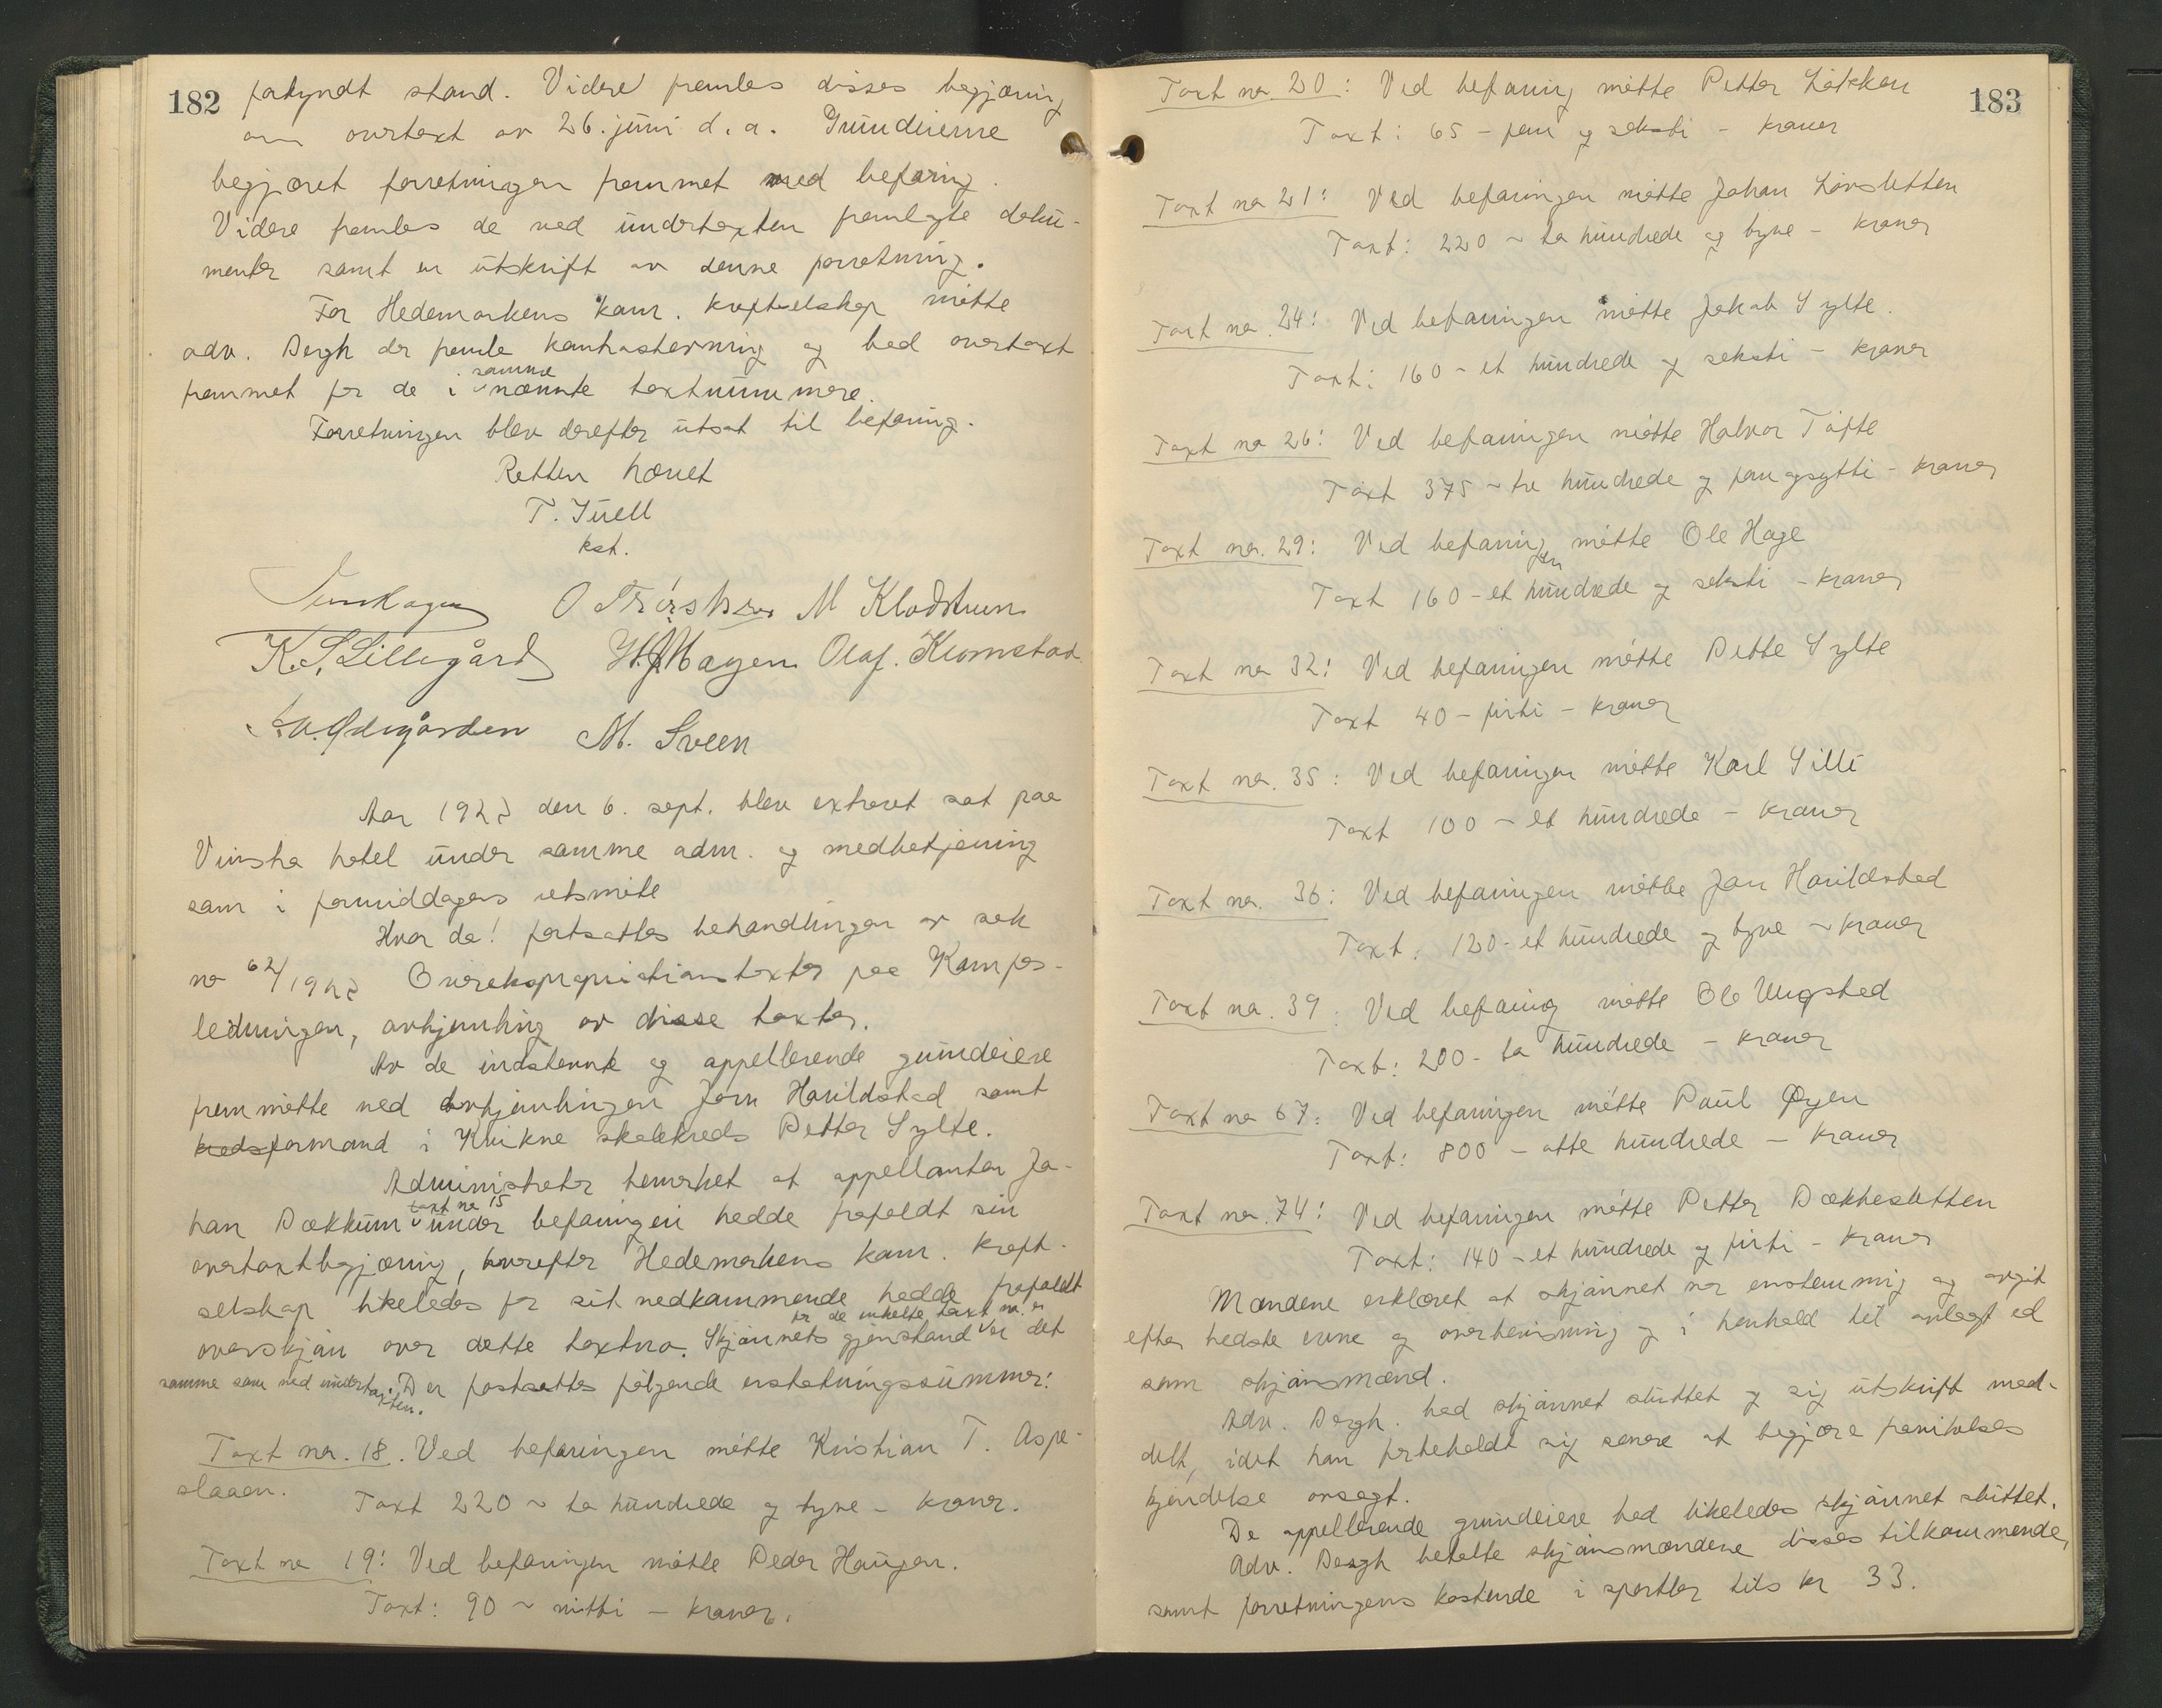 182
forkyndt stand. Videre fremlas disses begjæring
om overtaxt av 26. juni d. a. Grundeierne
begjæret forretningen fremmet med befaring.
Videre fremlas de ved undertaxten fremlagte doku-
menter samt en utskrift av denne forretning.
For Hedemarkens kom. kraftselskap møtte
adv. Bergh der fremla kontrastevning og bad overtaxt
fremmet for de i samme nævnte taxtnummere.
Forretningen blev derefter utsat til befaring.
Retten hævet
T. Juell
kst.
O Trøsker M Klodshun
K. S. Lillegård H. J. Hagen Olaf. Kromstad
Ødegården M. Sveen
Aar 1922 den 6. sept. blev extraret sat paa
Vinstra hotel under samme adm. og medbetjening
som i formiddagens retsmøte
Hvor da! fortsattes behandlingen av sak
no 62/1922 Overekspropriationstaxter paa Kamfos-
ledningen, avhjemling av disse taxter.
Av de indstevnte og appellerende grundeiere
fremmøtte ved avhjemlingen Jørn Harildstad samt
kredsformand i Kvikne skolekreds Petter Sylte.
Administrator bemerket at appellanten Jo-
han Bækkum taxt no 15 under befaringen hadde frafaldt sin
overtaxtbegjæring, hvorefter Hedemarkens kom. kraft-
selskap likeledes for sit vedkommende hadde frafaldt
overskjøn over dette taxtno. Skjønnets gjenstand for de enkelte taxt no er var det
samme som ved undertaxten. Der fastsattes følgende erstatningssummer:
Taxt no. 18. Ved befaringen møtte Kristian T. Aspe-
slaaen.
Taxt 220 ~ to hundrede og tyve – kroner.
Taxt no 19: Ved befaringen møtte Peder Haugen.
Taxt: 90 ~ nitti – kroner.
183
Taxt no 20: Ved befaring møtte Petter Løkken
Taxt: 65 – fem og seksti – kroner
Taxt no 21: Ved befaringen møtte Johan Løvsletten
Taxt: 220 ~ to hundrede og tyve – kroner
Taxt no. 24: Ved befaringen møtte Jakob Sylte.
Taxt: 160 – et hundrede og seksti – kroner
Taxt no 26: Ved befaringen møtte Halvor Tofte
Taxt 375 ~ tre hundrede og femogsytti – kroner
Taxt no. 29: Ved befaringen møtte Ole Hage
Taxt 160 – et hundrede og seksti – kroner
Taxt no 32: Ved befaringen møtte Petter Sylte
Taxt 40 – firti – kroner
Taxt no. 35: Ved befaringen møtte Karl Silli
Taxt 100 ~ et hundrede – kroner
Taxt no. 36: Ved befaringen møtte Jørn Harildstad
Taxt: 120 – et hundrede og tyve ~ kroner
Taxt no. 39: Ved befaring møtte Ole Ulvgsted
Taxt: 200 – to hundrede – kroner
Taxt no 67: Ved befaringen møtte Paul Øyen
Taxt: 800 – otte hundrede – kroner
Taxt no. 74: Ved befaringen møtte Petter Bækkesletten
Taxt: 140 – et hundrede og firti – kroner
Mændene erklæret at skjønnet var enstemmig og avgit
efter bedste evne og overbevisning og i henhold til avlagt ed
som skjønsmænd.
Adv. Bergh bad skjønnet sluttet og sig utskrift med-
delt, idet han forbeholdt sig senere at begjære fravikelses
kjendelse avsagt.
De appellerende grundeiere bad likeledes skjønnet sluttet.
Adv. Bergh betalte skjønsmændene disses tilkommende,
samt forretningens kostende i sportler tils kr 33.